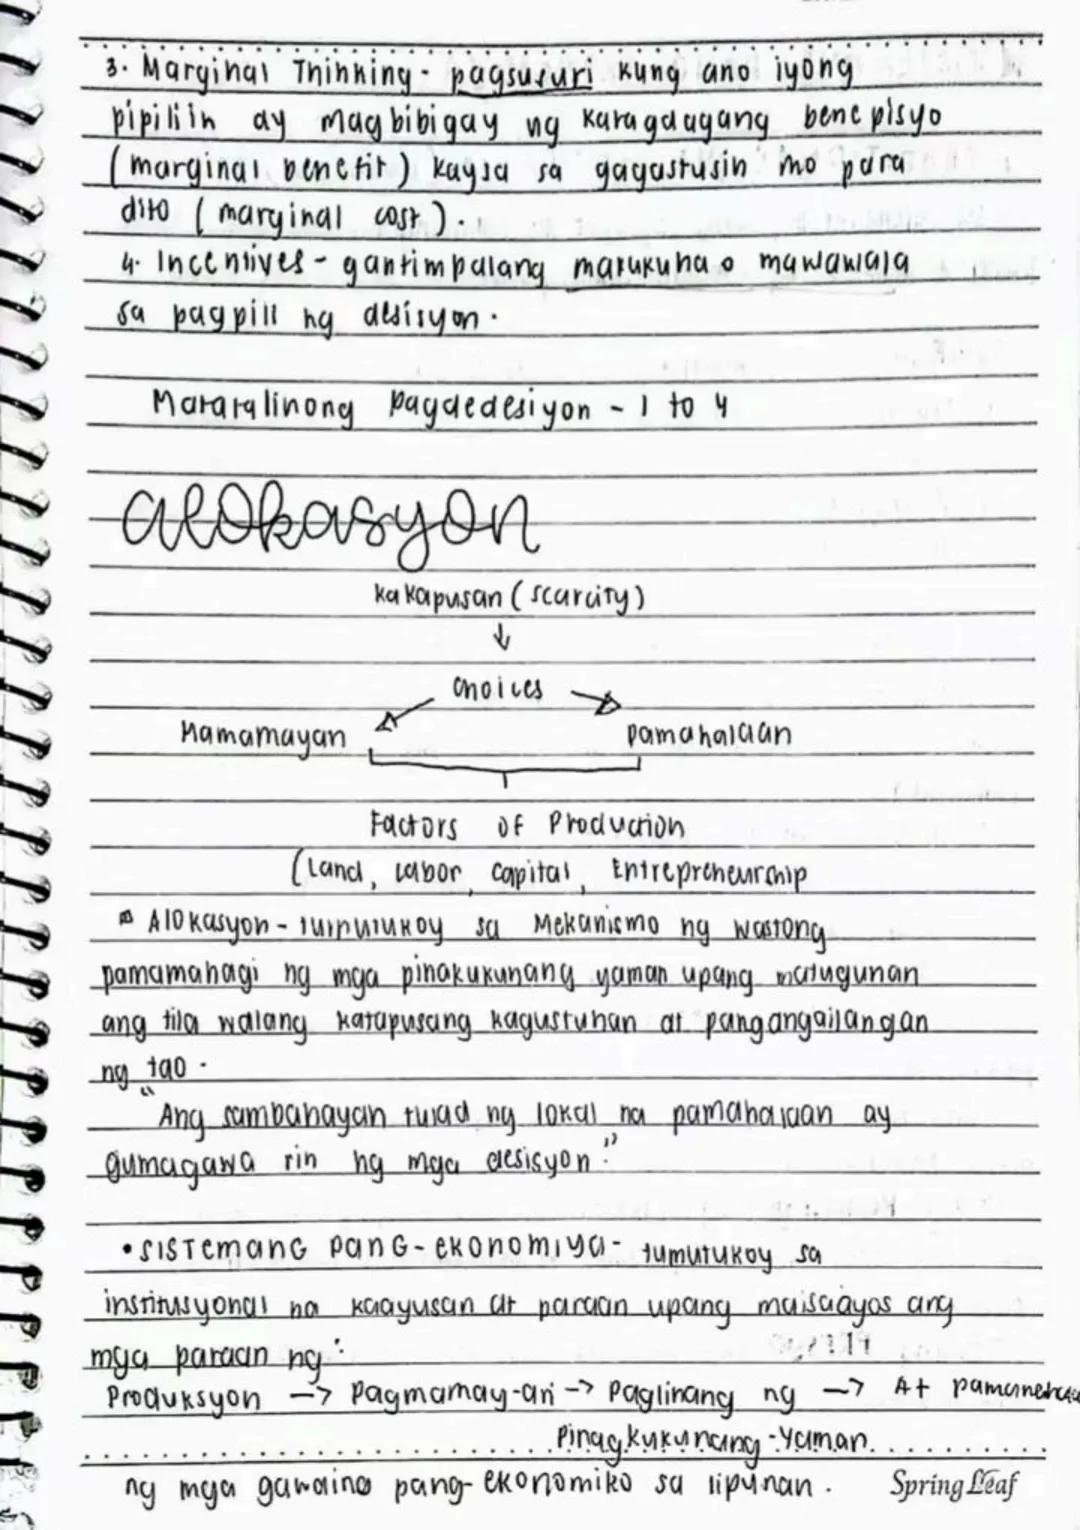 3. Marginal Thinking - pagsusuri kung ano iyong
pipiliin ay magbibigay ng karagdagang benepisyo
(marginal benefit) kaysa sa gagastusin mo para
dito (marginal cost).
4. Incentives - gantimpalang makukuha o mawawala
sa pagpili ng desisyon.
Matatalinong Pagdedesiyon - 1 to 4
alokasyon
kakapusan (scarcity)
↓
choices
Mamamayan pamahalaan
Factors of Production
(Land, Labor, Capital, Entrepreneurship
Alokasyon - tumutukoy sa Mekanismo ng wastong
pamamahagi ng mga pinakukunang yaman upang matugunan
ang tila walang katapusang kagustuhan at pangangailangan
ng tao.
"Ang sambahayan tulad ng lokal na pamahalaan ay
gumagawa rin ng mga desisyon."
• SISTEMANG PANG-EKONOMIYA - tumutukoy sa
institusyonal na kaayusan at paraan upang maisaayos ang
mga paraan ng:
Produksyon -> Pagmamay-ari -> Paglinang ng -> At
Pinagkukunang-Yaman
ng mga gawaing pang-ekonomiko sa lipunan.
Spring Leaf